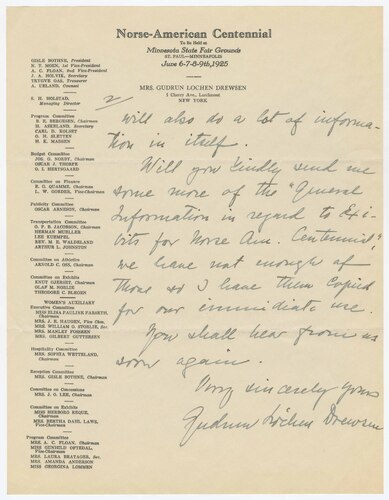 Norse-American Centennial
To be Held at
Minnesota State Fair Grounds
ST. PAUL—MINNEAPOLIS
June 6-7-8-9th, 1925
MRS. GUDRUN LOCHEN DREWSEN
5 Cherry Ave., Larchmont
NEW YORK
GISLE BOTHNE, President
N. T. MOEN, 1st Vice-President
A. C. FLOAN, 2nd Vice-President
J. A. HOLVIK, Secretary
TRYGVE OAS, Treasurer
A. UELAND, Counsel
S. H. HOLSTAD,
Managing Director
Program Committee
B. E. BERGESEN, Chairman
H. ASKELAND, Secretary
CARL D. KOLSET
O. H. SLETTEN
H. K. MADSEN
Budget Committee
JOS. G. NORBY, Chairman
OSCAR J. THORPE
O. I. HERTSGAARD
Committee on Finance
E. G. QUAMME, Chairman
L. W. GORDER, Vice-Chairman
Publicity Committee
OSCAR ARNESON, Chairman
Transportation Committee
O. P. B. JACOBSON, Chairman
HERMAN MUELLER
LEE KUEMPEL
REV. M. E. WALDELAND
ARTHUR L. JOHNSTON
Committee on Athletics
ARNOLD C. OSS, Chairman
Committee on Exhibits
KNUT GJERSET, Chairman
OLAF M. NORLIE
THEODORE C. BLEGEN
WOMEN'S AUXILIARY
Executive Committee
MISS ELISA PAULINE FARSETH, Chairman
MRS. J. E. HAUGEN, Vice Chm.
MRS. WILLIAM O. STORLIE, Sec.
MRS. MANLEY FOSSEEN
MRS. GILBERT GUTTERSEN
Hospitality Committee
MRS. SOPHIA WETTELAND, Chairman
Reception Committee
MRS. GISLE BOTHNE, Chairman
Committee on Concessions
MRS. J. G. LEE, Chairman
Committee on Exhibits
MISS HERBORG REQUE, Chairman
MRS. BERTHA DAHL LAWS, Vice-Chairman
Program Committee
MRS. A. C. FLOAN, Chairman
MISS GUNHILD OFTEDAL, Vice-Chairman
MRS. LAURA BRATAGER, Sec.
MRS. AMANDA ANDERSON
MISS GEORGINA LOMMEN
2
will also do a lot of informa-
tion in itself.
Will you kindly send me
some more of the "General
Information in regard to Exi-
bits for Norse Am. Centennial",
we have not enough of
those so I have them copied
for our immediate use.
You shall hear from us
soon again.
Very sincerely Yours
Gudrun Löchen Drewsen